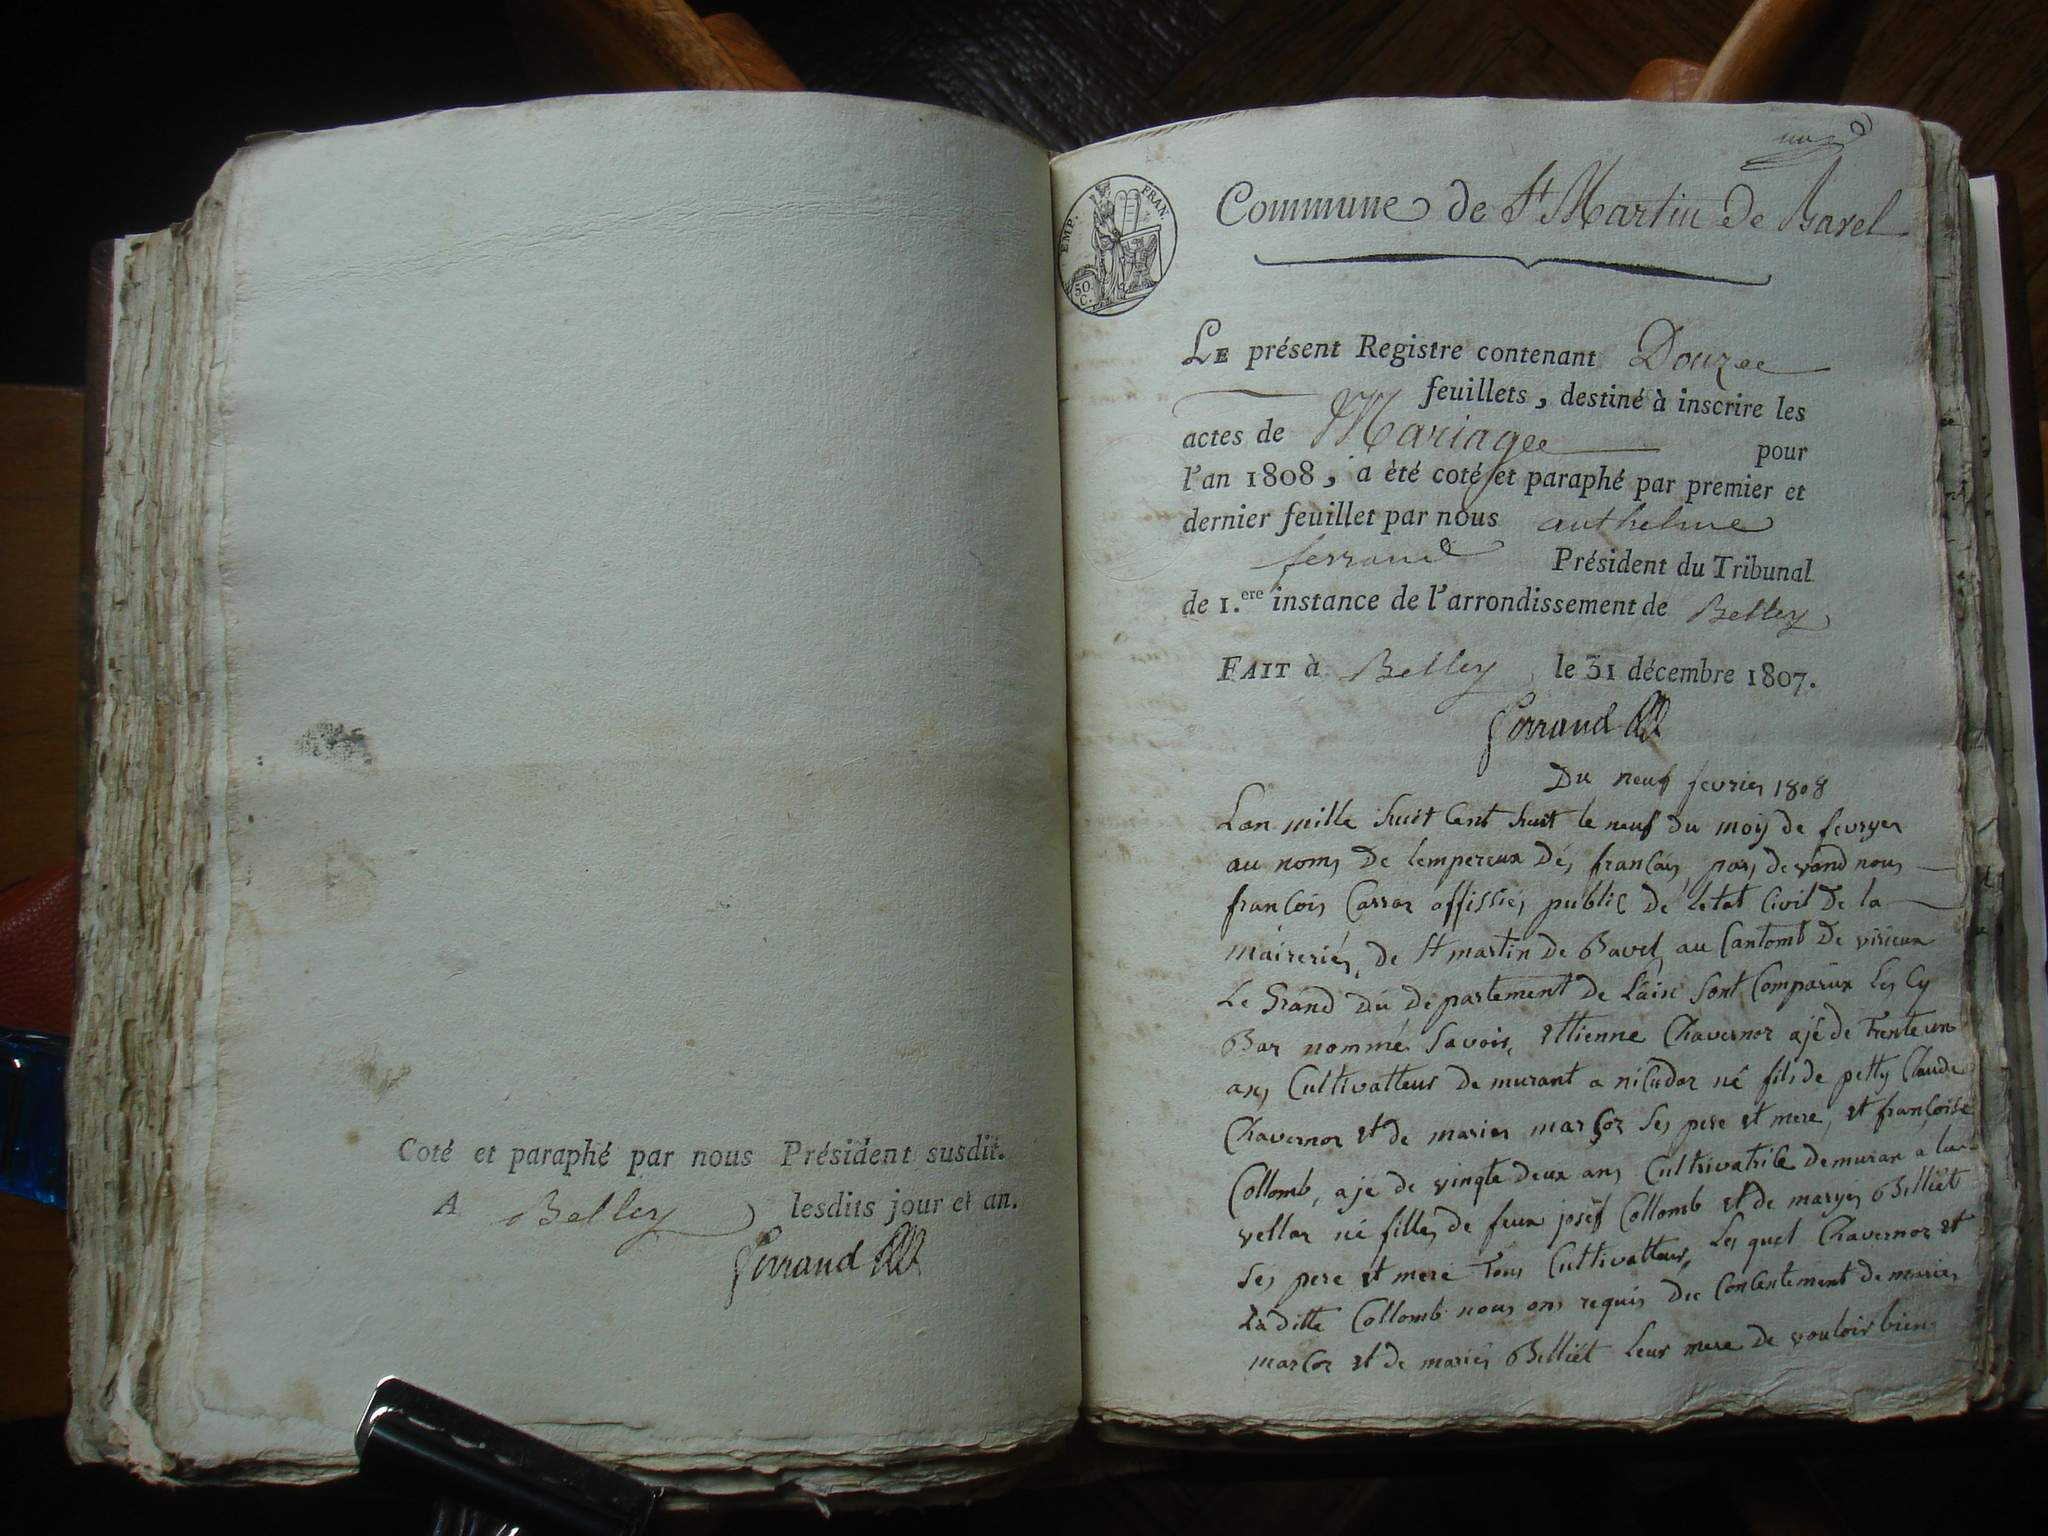 Coté et paraphé par nous Président susdit.
A Belley lesdits jour et an.
Ferrand
un
EMP. FRAN.
50. C.
Commune de St Martin de Bavel
LE présent Registre contenant Douze
feuillets, destiné à inscrire les
actes de Mariage pour
l'an 1808, a été coté et paraphé par premier et
dernier feuillet par nous anthelme
ferrand Président du Tribunal
de 1.ere instance de l'arrondissement de Belley
FAIT à Belley le 31 décembre 1807.
Ferrand
Du neuf fevrier 1808
Lan mille huit Cent huit le neuf du moy de fevryer
au noms De lempereux Dés francais, par, devand nous
françois Carrar offissier public de letat Civil de la
maireries, de St martin de Bavel, au Cantomb de virieux
Le Grand Du departement de Lain sont Comparux Les Cy
Bar nommé Savoir, Ettienne Chavernoz ajé de Trente un
ans Cultivatteur de murant a né fils de petty Claude
Chavernoz et de maries marcoz ses pere et mere, et françoise
Collomb, ajé de vingte deux ans Cultivatrice demurax a lu-
vellar né filles de feux josëf Collomb et de maryes Billiet
ses pere et mere Tous Cultivatteur, Les quel Chavernoz et
La ditte Collomb nous ons requis du Consentement de maries
marcoz et de maries Billiet Leur mere de vouloir bien